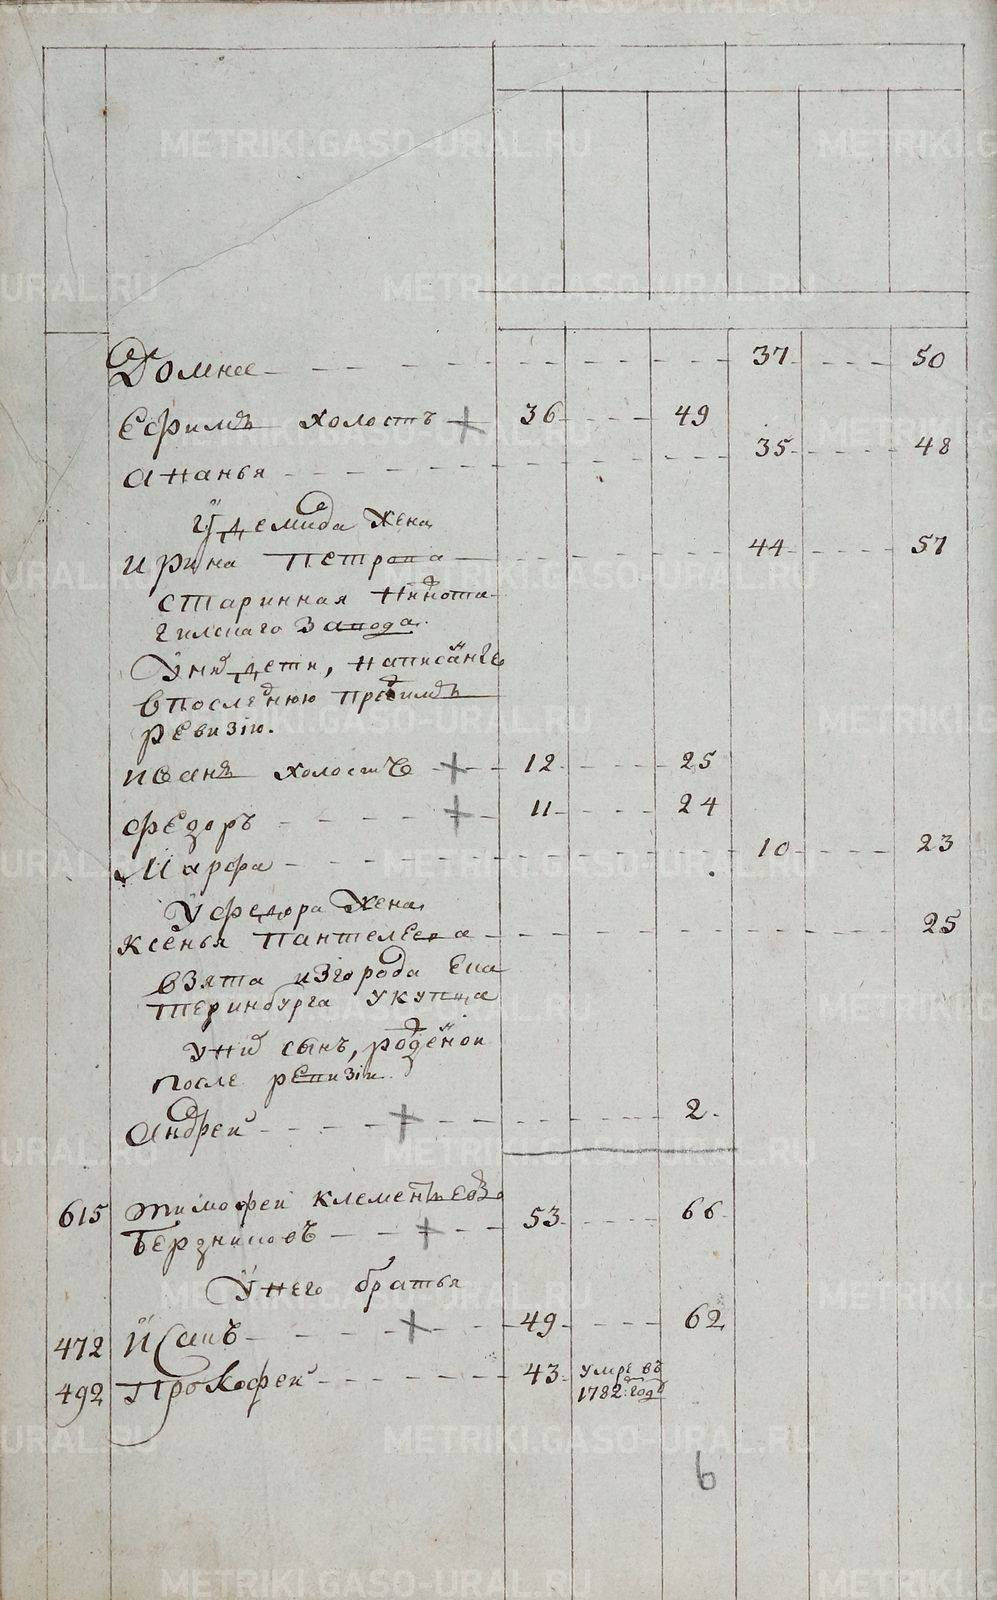 Домнее - - - 37 - - - 50
Ефимъ холостъ + 36 - - - 49
Ананья - - - 35 - - - 48
У Демида жена
Ирина Петрова - - - 44 - - - 57
старинная Нижнота-
гилскаго завода.
У них дети, написанże
в последнюю пред симъ
ревизію.
Иванъ холостъ + 12 - - - 25
Федоръ - - - + 11 - - - 24
Марфа - - - 10 - - - 23
У Федора жена
Ксенья Пантелеева - - - 25
взята изгорода Ека
теринбурга у купца
у них сынъ, рожденои
после ревизіи
Андреи - - - + - - - 2.
615 Тимофеи Клементьевъ
Берзниковъ - - + - - 53 - - - 66
У него братья
472 Исакъ - - - + - - 49 - - - 62
492 Прокофеи - - - 43 умре въ
1782 году
6
METRIKI.GASO-URAL.RU